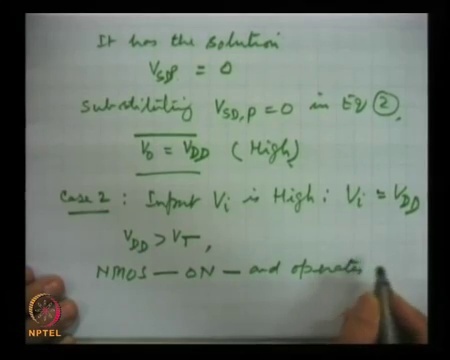 It has the solution
V_SDP = 0
Substituting V_SD,P = 0 in Eq ②,
V_O = V_DD (High)
Case 2 : Input V_i is High : V_i = V_DD
V_DD > V_T,
NMOS — ON — and operates
NPTEL